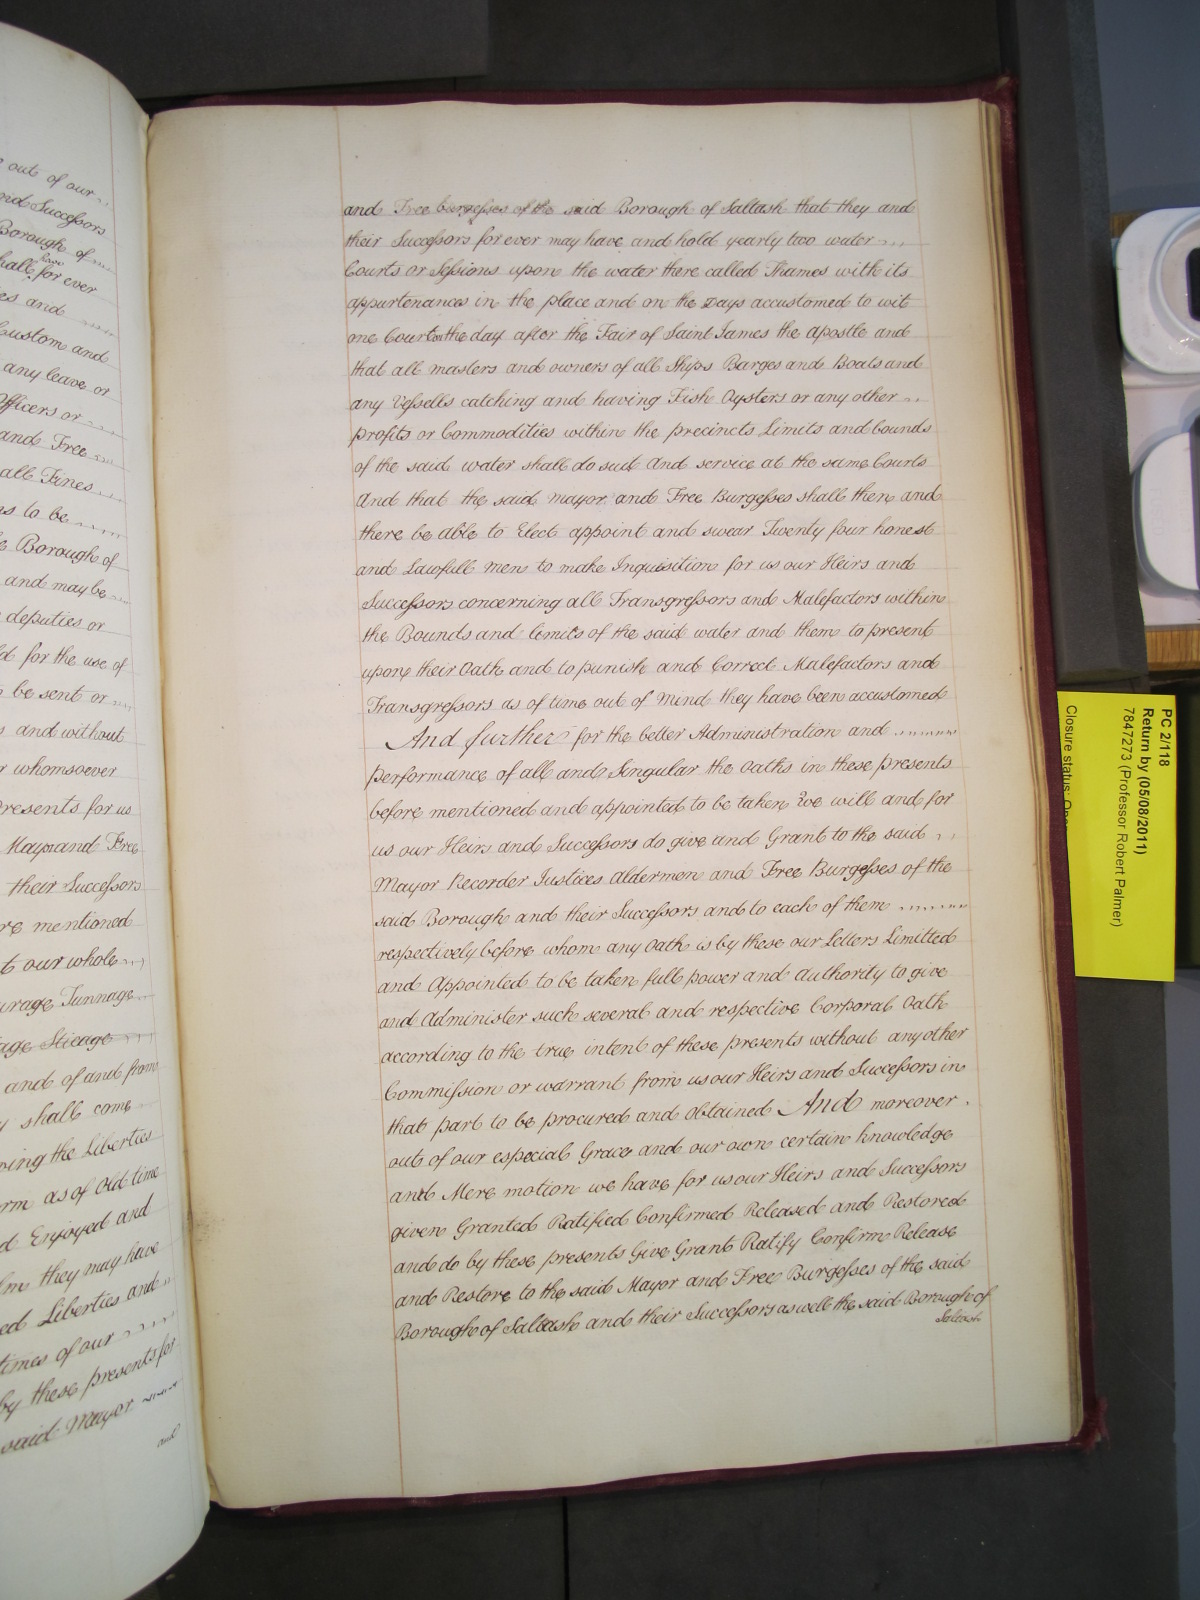 e out of our
and Successors
Borough of
have
shall for ever
es and
Custom and
any leave or
Officers or
and Free
all Fines
ns to be
e Borough of
and may be
deputies or
d for the use of
be sent or
s and without
r whomsoever
Presents for us
Mayor and Free
their Successors
re mentioned
t our whole
urage Tunnage
age Sticage
and of and from
y shall come
ving the Liberties
rm as of Old time
d Enjoyed and
lm they may have
ed Liberties and
times of our
by these presents for
said Mayor
and
and Free burgesses of the said Borough of Saltash that they and
their Successors for ever may have and hold yearly two water
Courts or Sessions upon the water there called Thames with its
appurtenances in the place and on the Days accustomed to wit
one Court on the day after the Fair of Saint James the Apostle and
that all masters and owners of all Ships Barges and Boats and
any Vessells catching and having Fish Oysters or any other
profits or Commodities within the precincts Limits and bounds
of the said water shall do suit And service at the same Courts
And that the said mayor and Free Burgesses shall then and
there be able to Elect appoint and swear Twenty four honest
and Lawfull men to make Inquisition for us our Heirs and
Successors concerning all Transgressors and Malefactors within
the Bounds and limits of the said water and them to present
upon their Oath and to punish and Correct Malefactors and
Transgressors as of time out of Mind they have been accustomed
And further for the better Administration and
performance of all and Singular the Oaths in these presents
before mentioned and appointed to be taken We will and for
us our Heirs and Successors do give and Grant to the said
Mayor Recorder Justices Aldermen and Free Burgesses of the
said Borough and their Successors and to each of them
respectively before whom any Oath is by these our Letters Limitted
and Appointed to be taken full power and authority to give
and Administer such several and respective Corporal Oath
according to the true intent of these presents without any other
Commission or warrant from us our Heirs and Successors in
that part to be procured and obtained And moreover
out of our especial Grace and our own certain knowledge
and Mere motion we have for us our Heirs and Successors
given Granted Ratified Confirmed Released and Restored
and do by these presents Give Grant Ratify Confirm Release
and Restore to the said Mayor and Free Burgesses of the said
Borough of Saltash and their Successors as well the said Borough of
Saltash
PC 2/118
Return by (05/08/2011)
7847273 (Professor Robert Palmer)
Closure status: